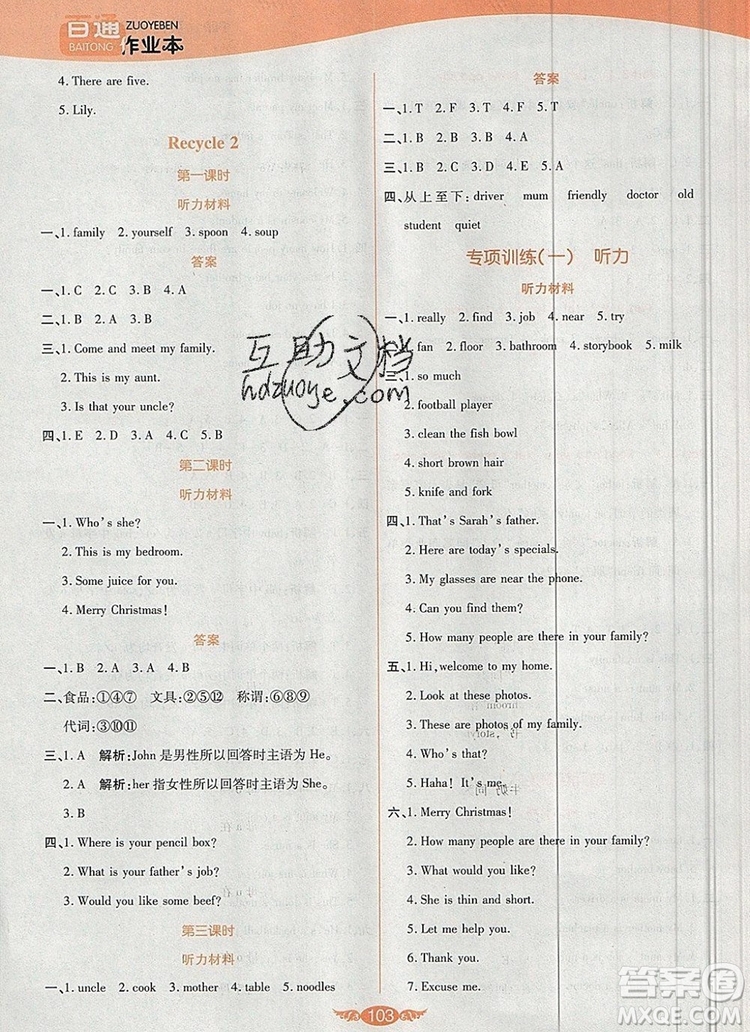 百通
BAITONG
ZUOYEBEN
作业本
4. There are five.
5. Lily.
Recycle 2
第一课时
听力材料
一、1. family 2. yourself 3. spoon 4. soup
答案
一、1. C 2. C 3. B 4. A
二、1. B 2. A 3. A 4. A
三、1. Come and meet my family.
2. This is my aunt.
3. Is that your uncle?
四、1. E 2. D 3. A 4. C 5. B
第二课时
听力材料
一、1. Who's she?
2. This is my bedroom.
3. Some juice for you.
4. Merry Christmas!
答案
一、1. B 2. A 3. A 4. B
二、食品:①④⑦ 文具:②⑤⑫ 称谓:⑥⑧⑨
代词:③⑩⑪
三、1. A 解析:John 是男性所以回答时主语为 He。
2. A 解析:her 指女性所以回答时主语为 She。
3. B
四、1. Where is your pencil box?
2. What is your father's job?
3. Would you like some beef?
第三课时
听力材料
一、1. uncle 2. cook 3. mother 4. table 5. noodles
答案
一、1. T 2. F 3. T 4. F 5. T
二、1. B 2. B 3. B 4. A
三、1. C 2. B 3. D 4. E 5. A
四、从上至下: driver mum friendly doctor old
student quiet
专项训练(一) 听力
听力材料
一、1. really 2. find 3. job 4. near 5. try
1. fan 2. floor 3. bathroom 4. storybook 5. milk
三、1. so much
2. football player
3. clean the fish bowl
4. short brown hair
5. knife and fork
四、1. That's Sarah's father.
2. Here are today's specials.
3. My glasses are near the phone.
4. Can you find them?
5. How many people are there in your family?
五、1. Hi, welcome to my home.
2. Look at these photos.
3. These are photos of my family.
4. Who's that?
5. Haha! It's me.
六、1. Merry Christmas!
2. How many people are there in your family?
3. What would you like?
4. She is thin and short.
5. Let me help you.
6. Thank you.
7. Excuse me.
103
互助文档
hdzuoye.com
答案圈
MXQE.COM